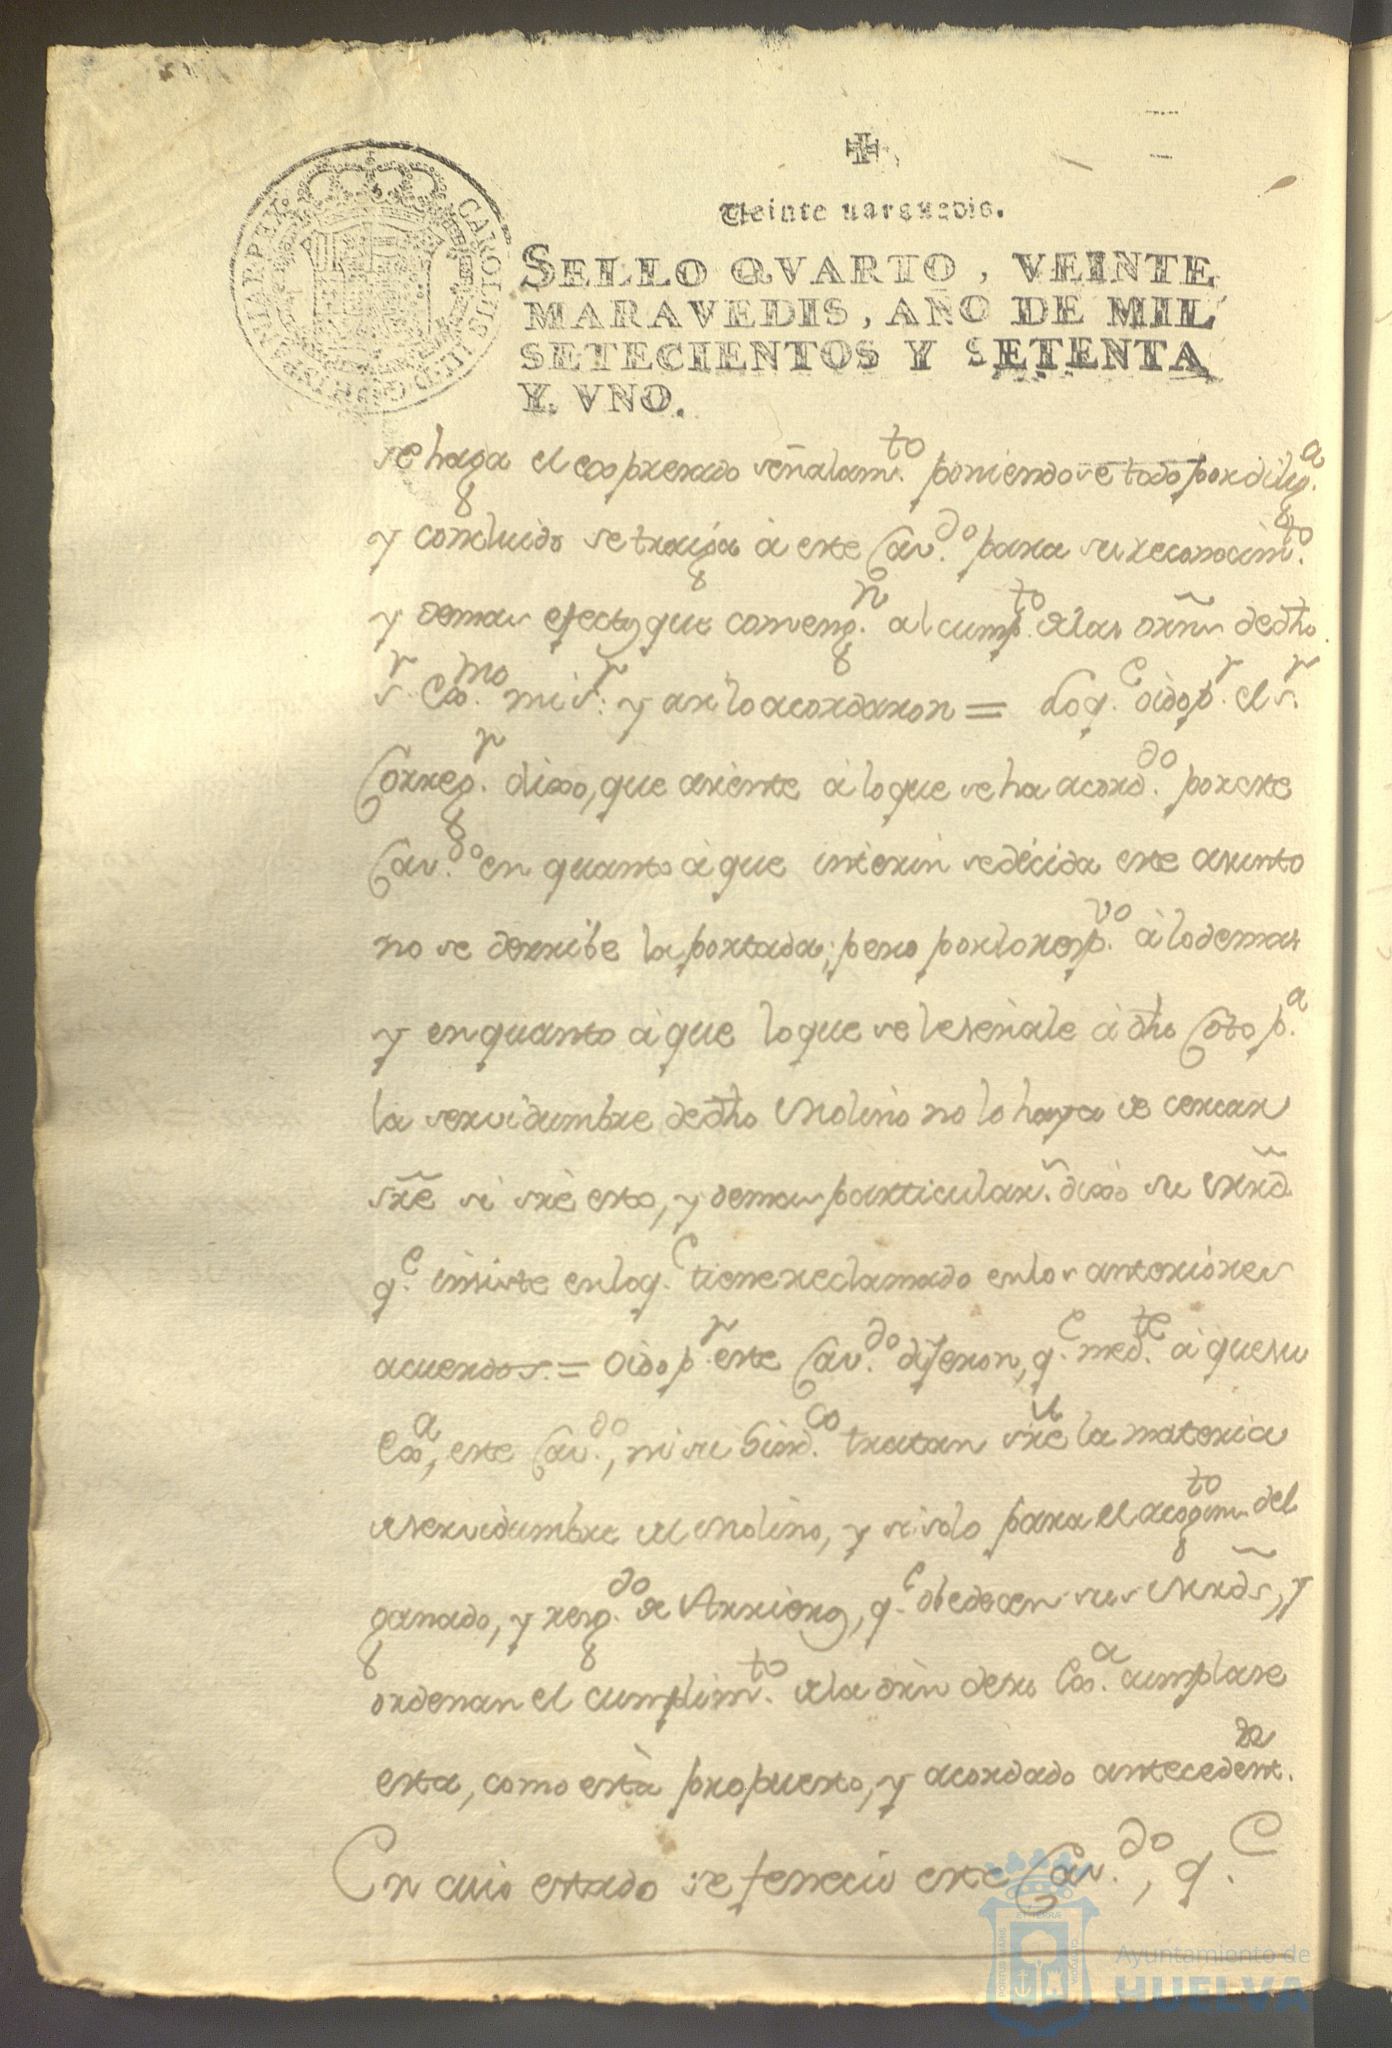 Veinte maravedis.
SELLO QVARTO, VEINTE
MARAVEDIS, AÑO DE MIL
SETECIENTOS Y SETENTA
Y VNO.
CAROLUS III D G HISPANIAR REX
se haga el expresado señalam.to poniendose todo por dilig.a
y concluido se traiga à este Cav.do para su reconocim.to
y demas efectos que conveng.n al cump.to de las orñs de dho
s.r Exmo. mi s.r y asi lo acordaron = Lo q.e oido p.r el s.r
Correg.r dixo, que asiente à lo que se ha acord.do por este
Cav.do en quanto à que interin se decida este asunto
no se derribe la portada; pero por lo resp.vo à lo demas
y en quanto à que lo que se le señale à dho Coto p.a
la servidumbre de dho Molino no lo haya de cercar
sr̃e si sr̃e esto, y demas particular.s dixo su Mrd̃
q.e insiste en lo q.e tiene reclamado en los anteriores
acuerdos. = Oido p.r este Cav.do dijeron, q.e med.te à que su
Ex.a, este Cav.do, ni su Sind.co tratan sr̃e la materia
de servidumbre de el Molino, y si solo para el acogim.to del
ganado, y resg.do de Arrieros, q.e obedecen sus Mrds̃, y
ordenan el cumplim.to de la orñ de su Ex.a cumplase
esta, como està propuesto, y acordado antecedent.
En cuio estado se fenecio este Cav.do, q.e
Ayuntamiento de
HUELVA